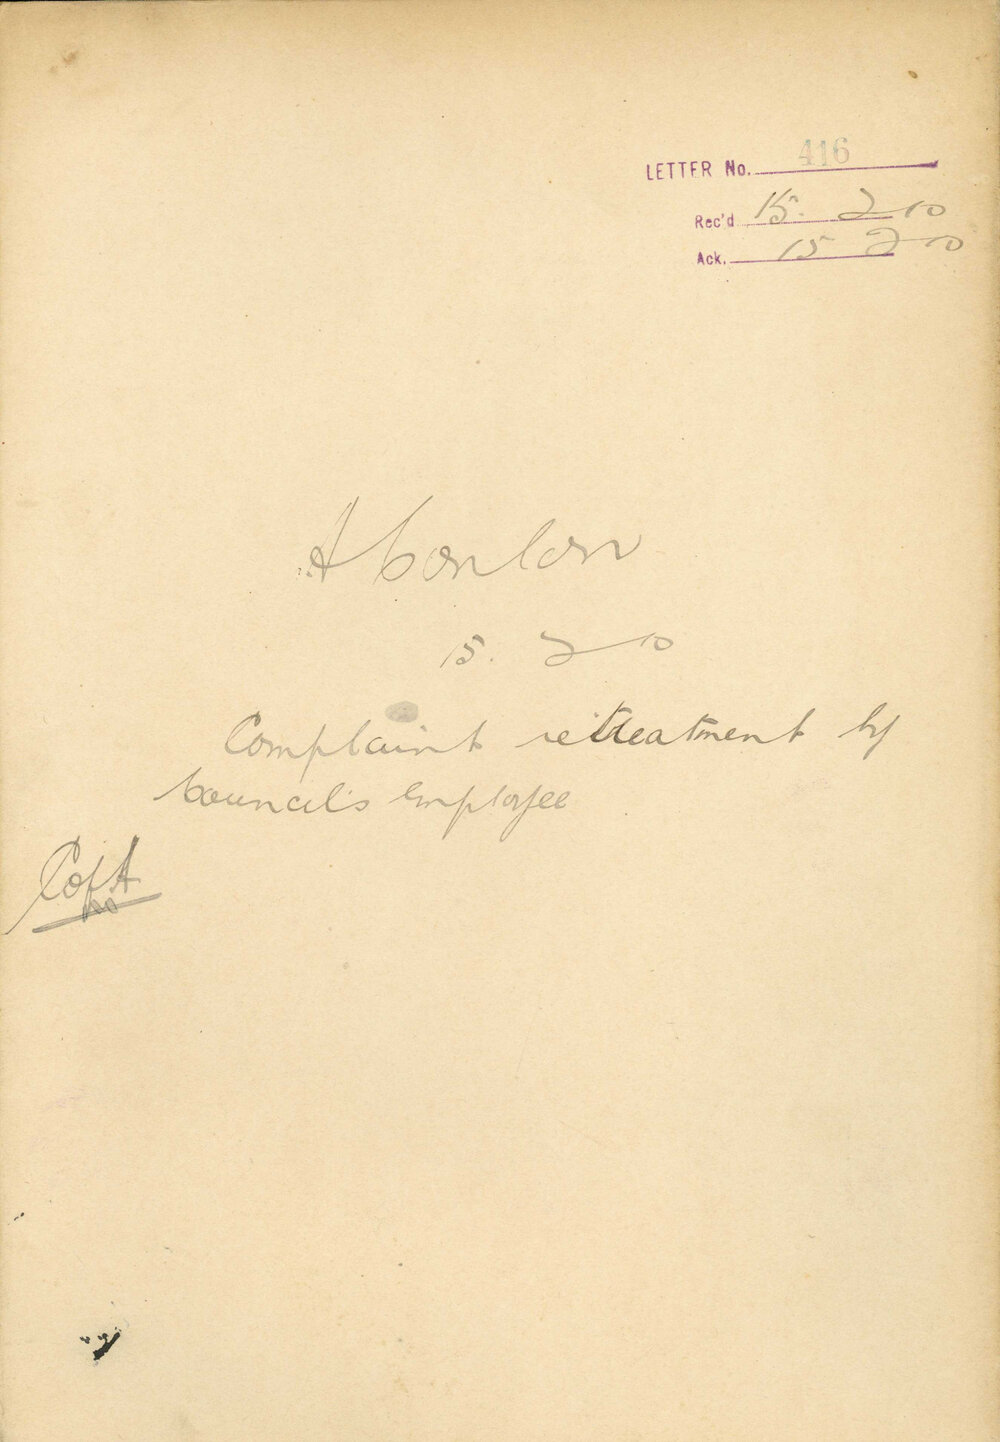 LETTER No. 416
Rec'd 15. 2 10
Ack. 15 2 10
A Conlon
15. 2 10
Complaint re treatment by
Council's Employee
C of A